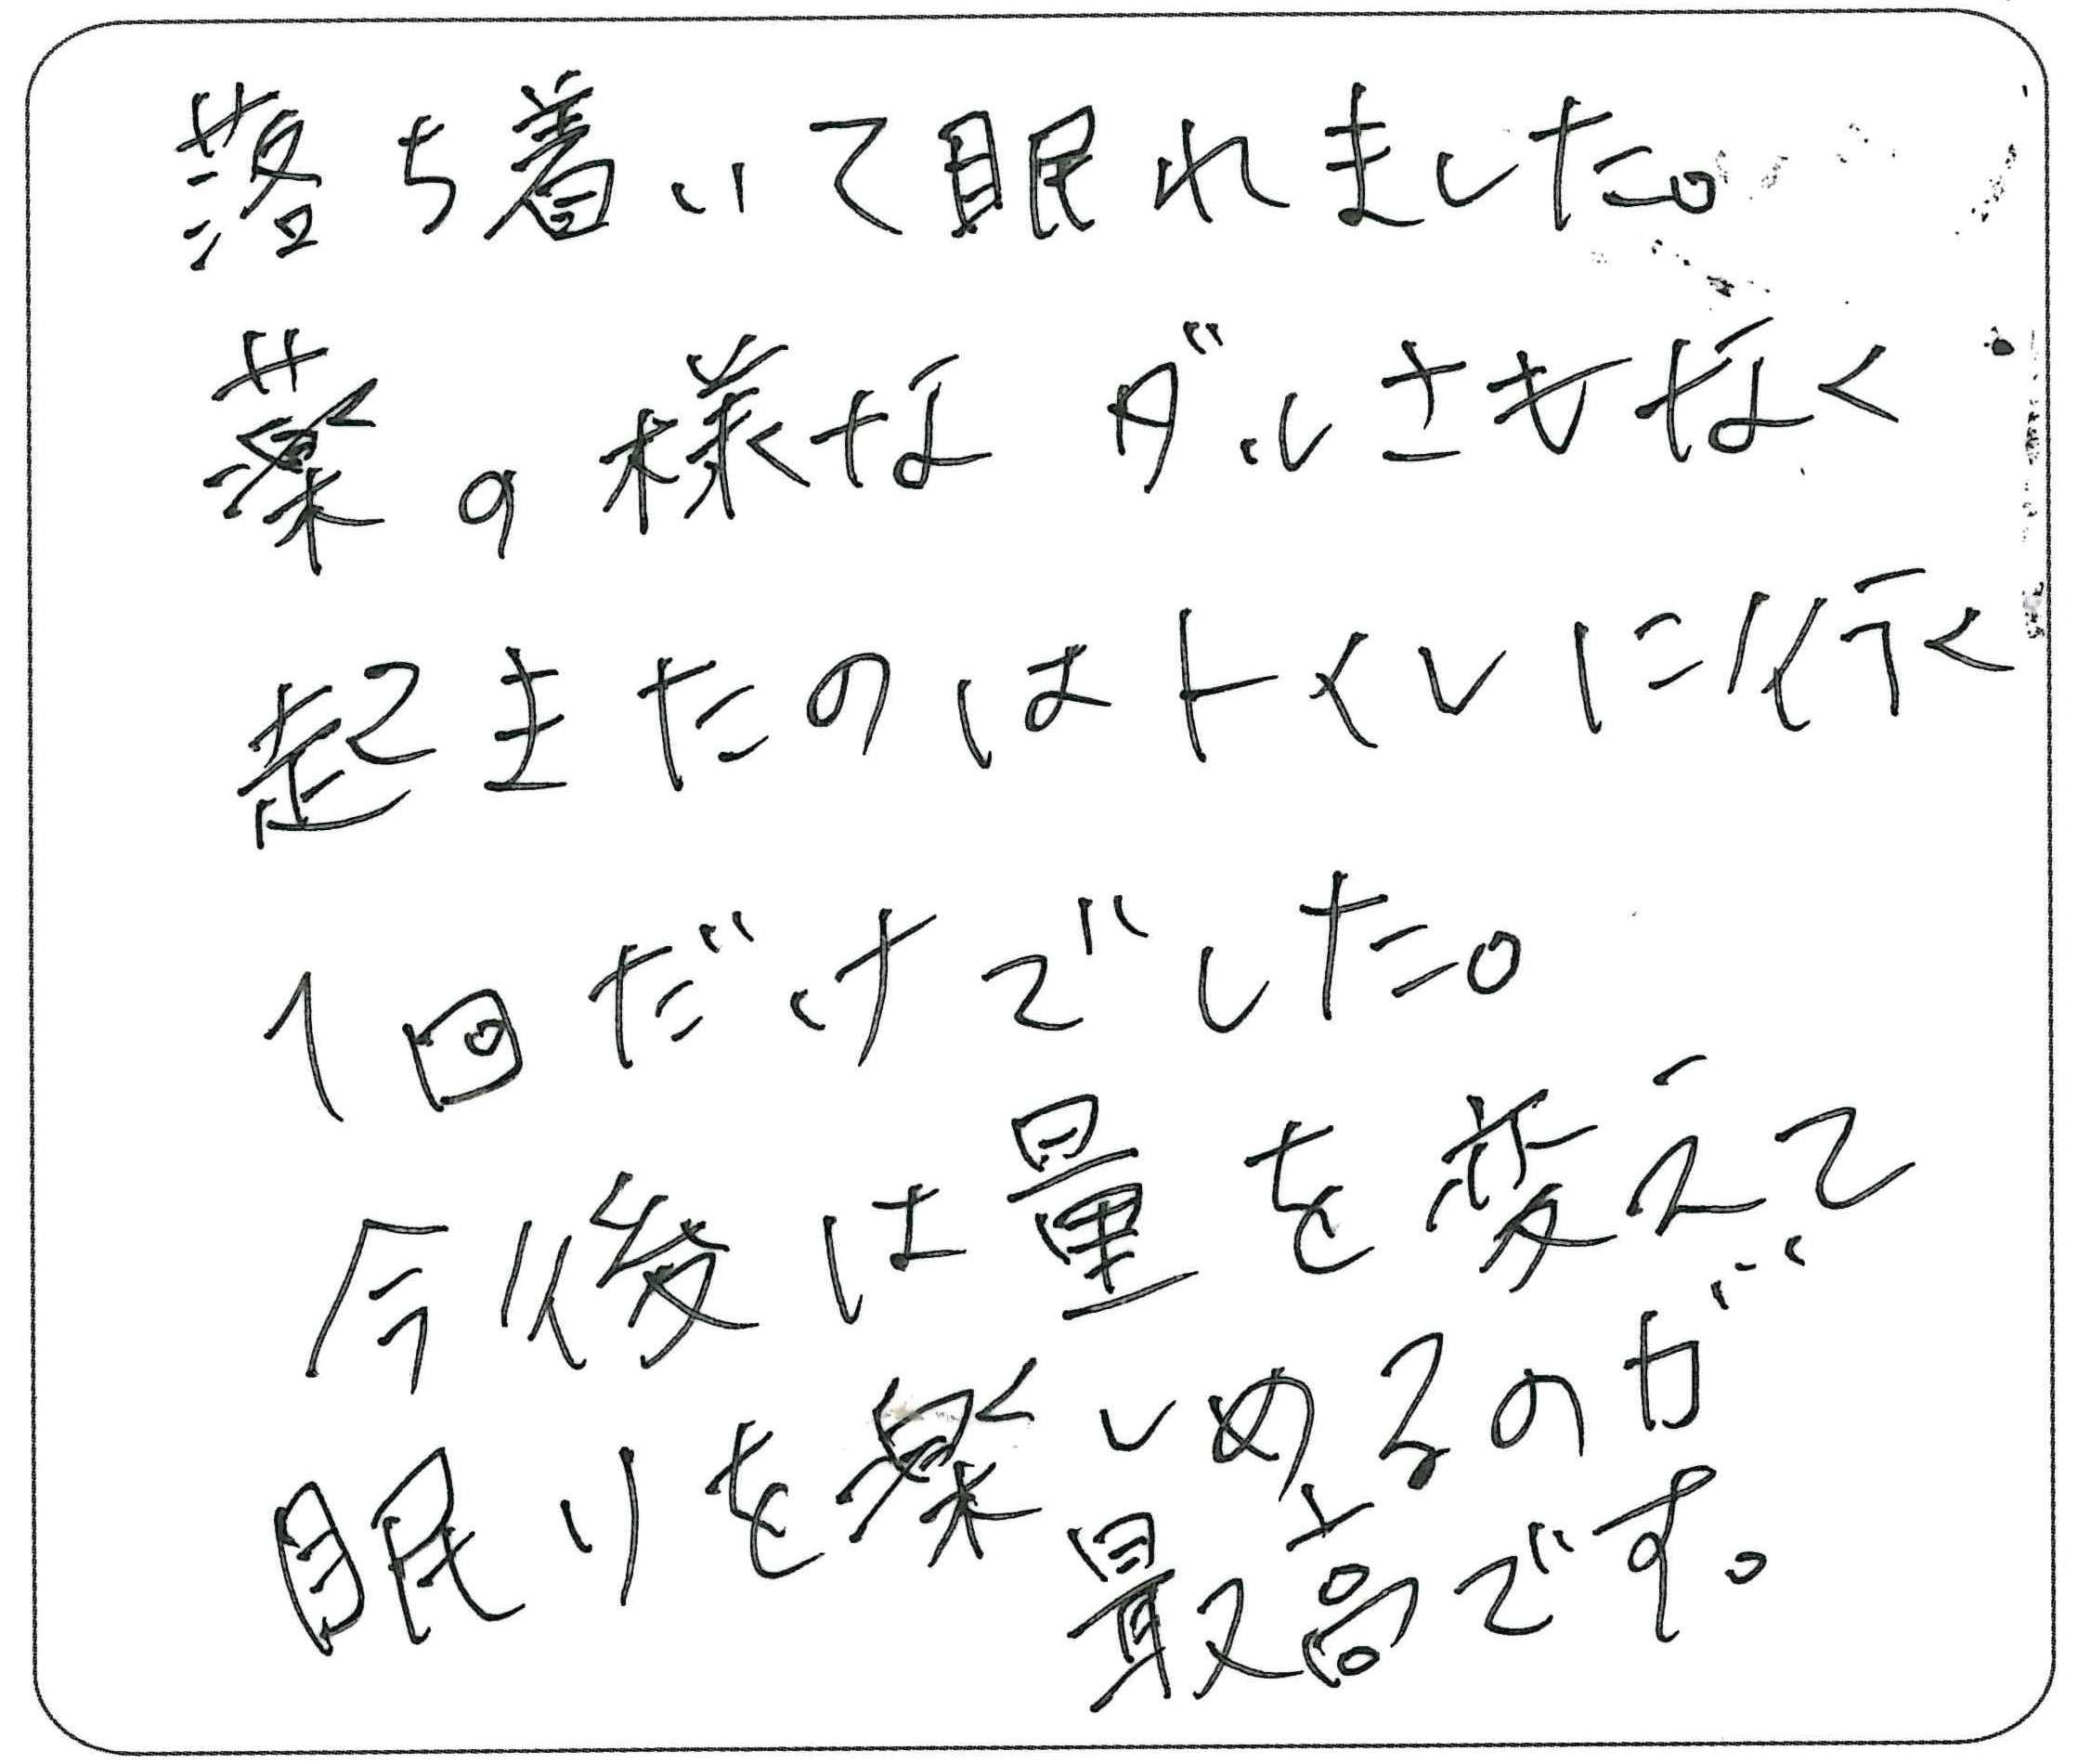 落ち着いて眠れました。
薬の様なダルさもなく
起きたのはトイレに行く
1回だけでした。
今後は量を変えて
眠りを楽しめるのが
最高です。